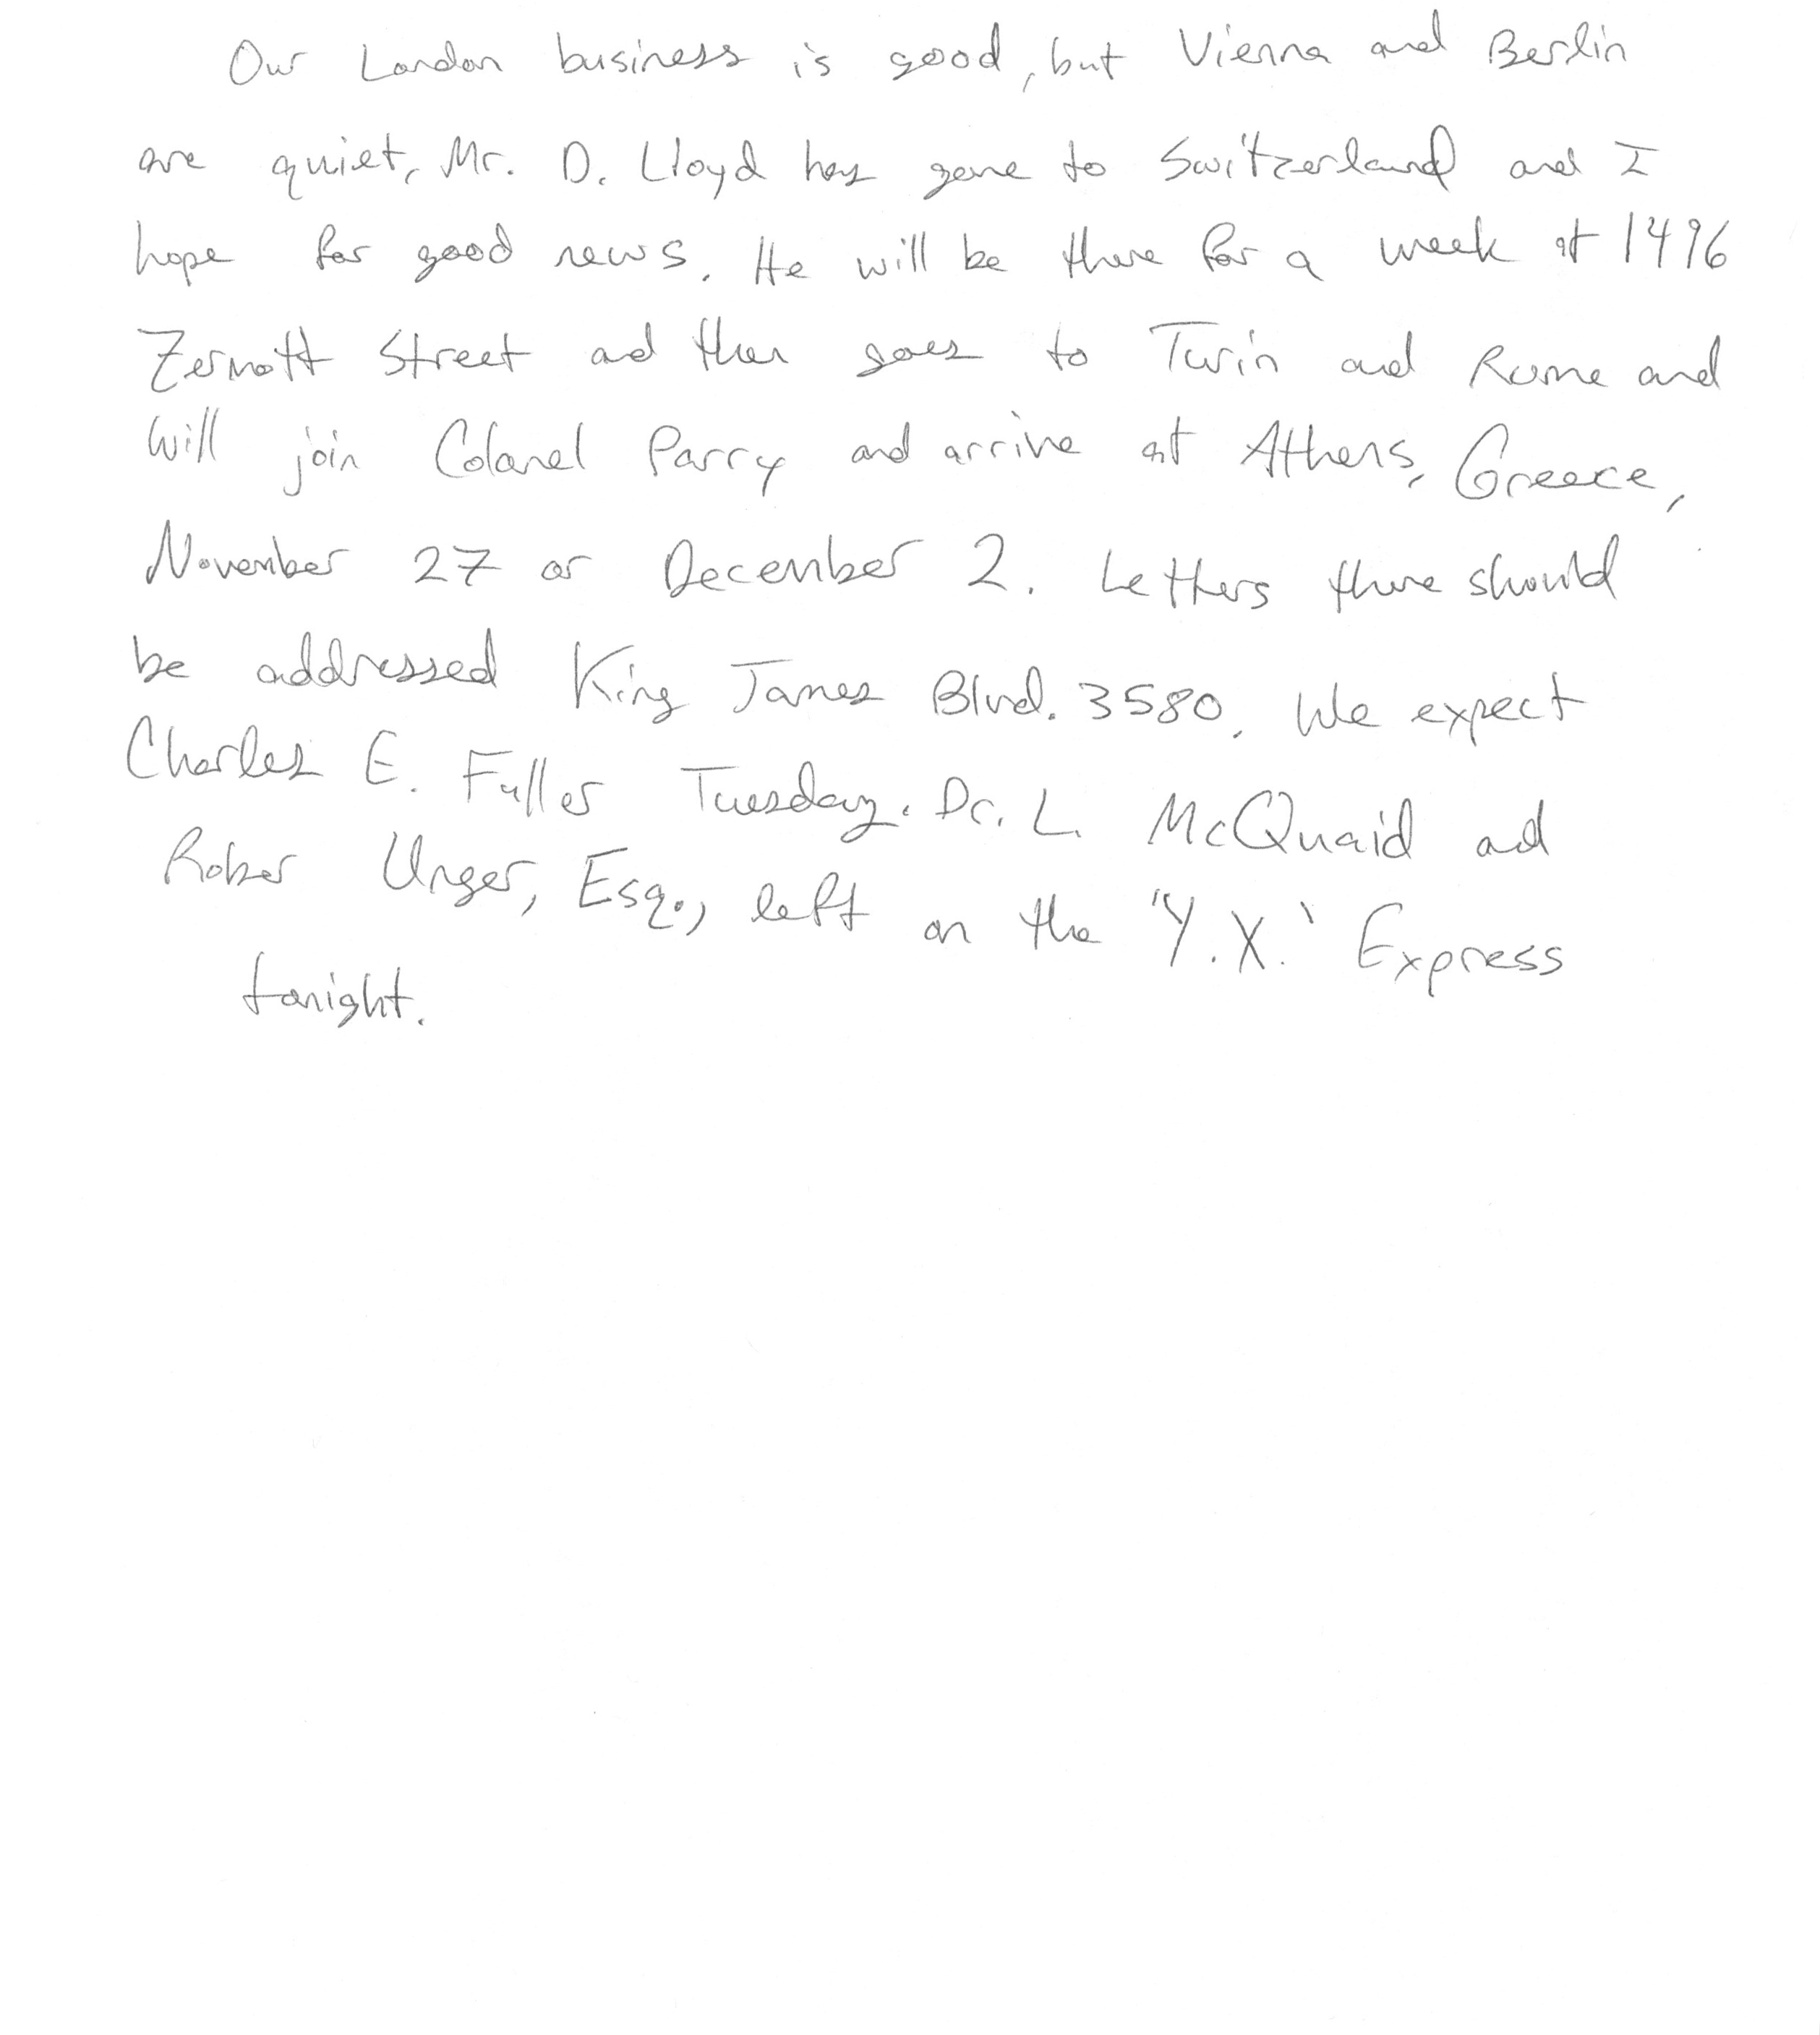 Our London business is good, but Vienna and Berlin
are quiet, Mr. D. Lloyd has gone to Switzerland and I
hope for good news. He will be there for a week at 1496
Zermott Street and then goes to Turin and Rome and
will join Colonel Parry and arrive at Athens, Greece,
November 27 or December 2. Letters there should
be addressed King James Blvd. 3580. We expect
Charles E. Fuller Tuesday. Dr. L. McQuaid and
Rober Unger, Esq., left on the 'Y.X.' Express
tonight.